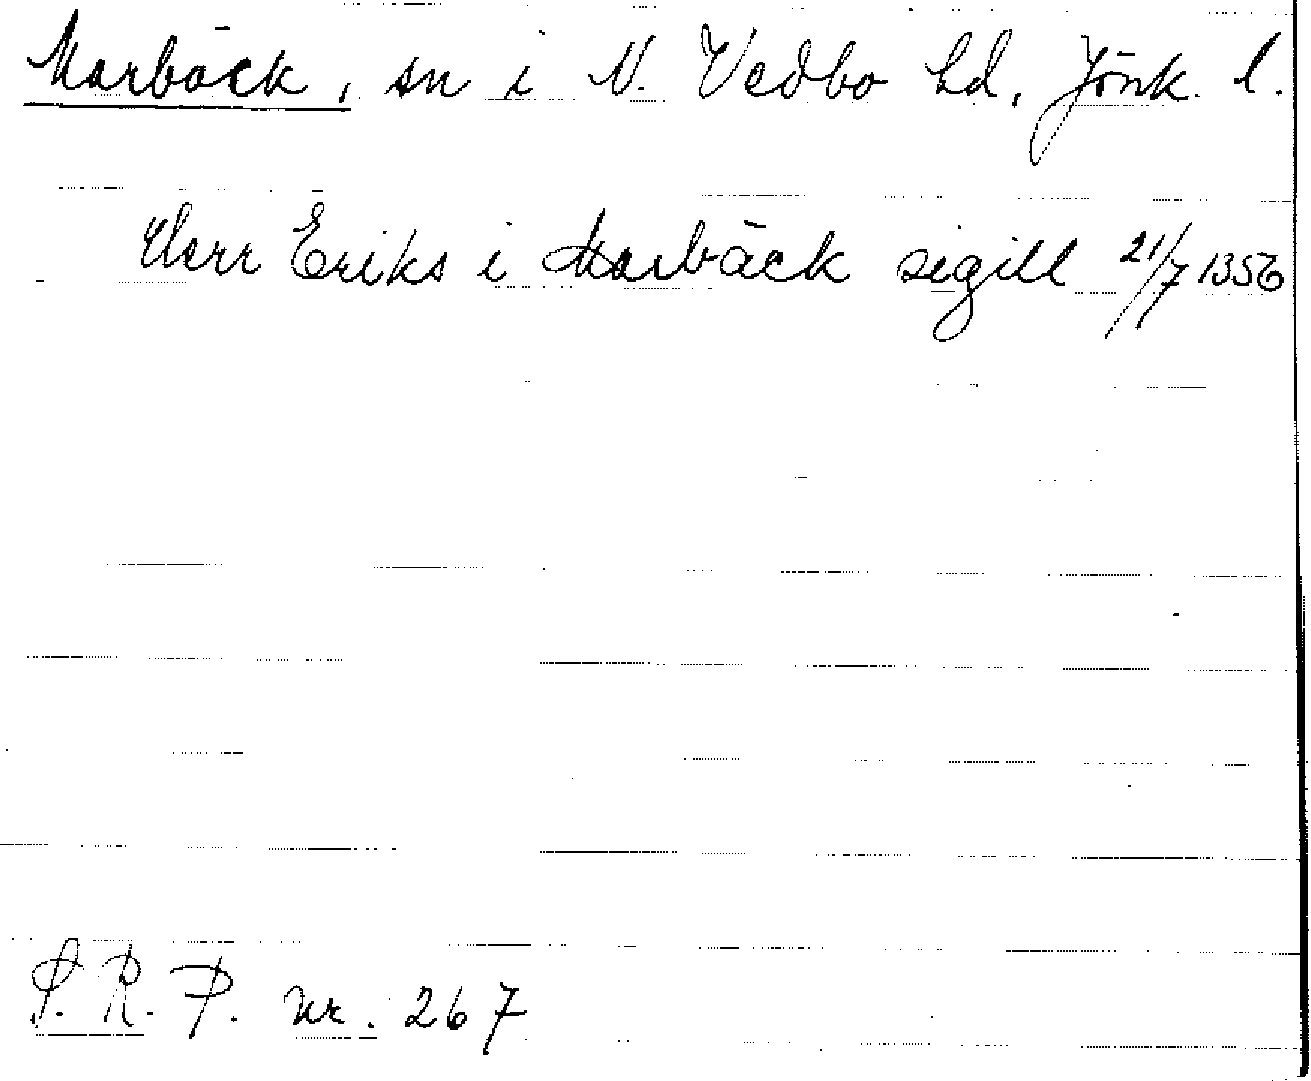 Marbäck, sn i N. Vedbo hd, Jönk. l.
Herr Eriks i Marbäck sigill 21/7 1356
S. R. P. nr. 267